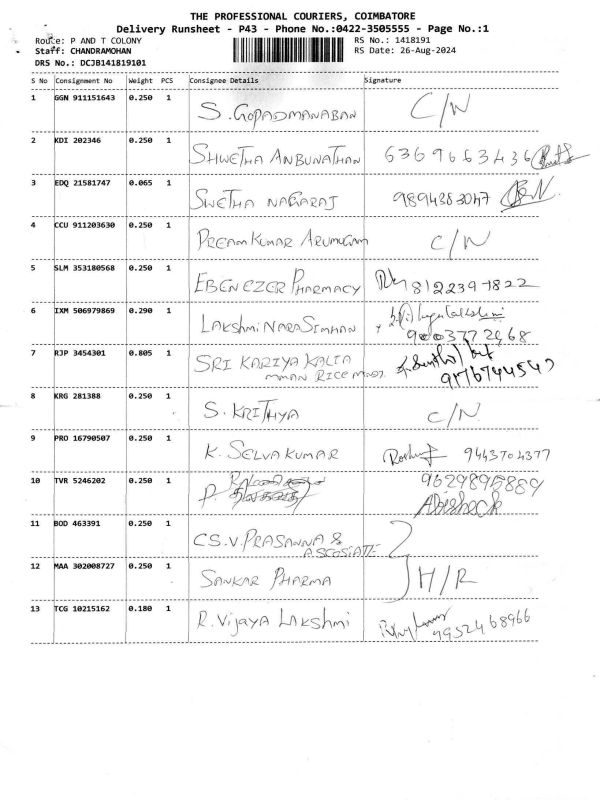 THE PROFESSIONAL COURIERS, COIMBATORE
Delivery Runsheet - P43 - Phone No.:0422-3505555 - Page No.:1
Route: P AND T COLONY
RS No.: 1418191
Staff: CHANDRAMOHAN
RS Date: 26-Aug-2024
DRS No.: DCJB141819101
S No Consignment No Weight PCS Consignee Details Signature
1 GGN 911151643 0.250 1 S. GOPADMANABAN C/N
2 KDI 202346 0.250 1 SHWETHA ANBUNATHAN 6369663436
3 EDQ 21581747 0.065 1 SWETHA NAGARAJ 9894383047
4 CCU 911203630 0.250 1 PREAM KUMAR ARUMUGAM C/N
5 SLM 353180568 0.250 1 EBENEZER PHARMACY 8122391822
6 IXM 506979869 0.290 1 LAKSHMI NARASIMHAN
9003772468
7 RJP 3454301 0.805 1 SRI KARIYA KALIA
MMAN RICE MANDI.
9176744547
8 KRG 281388 0.250 1 S. KRITHYA C/N
9 PRO 16790507 0.250 1 K. SELVAKUMAR 9443704377
10 TVR 5246202 0.250 1 P.
Abisheck
11 BOD 463391 0.250 1 CS.V. PRASANNA &
ASCOSIATE
12 MAA 302008727 0.250 1 SANKAR PHARMA H/R
13 TCG 10215162 0.180 1 R. Vijaya LAKSHMI 9952468966